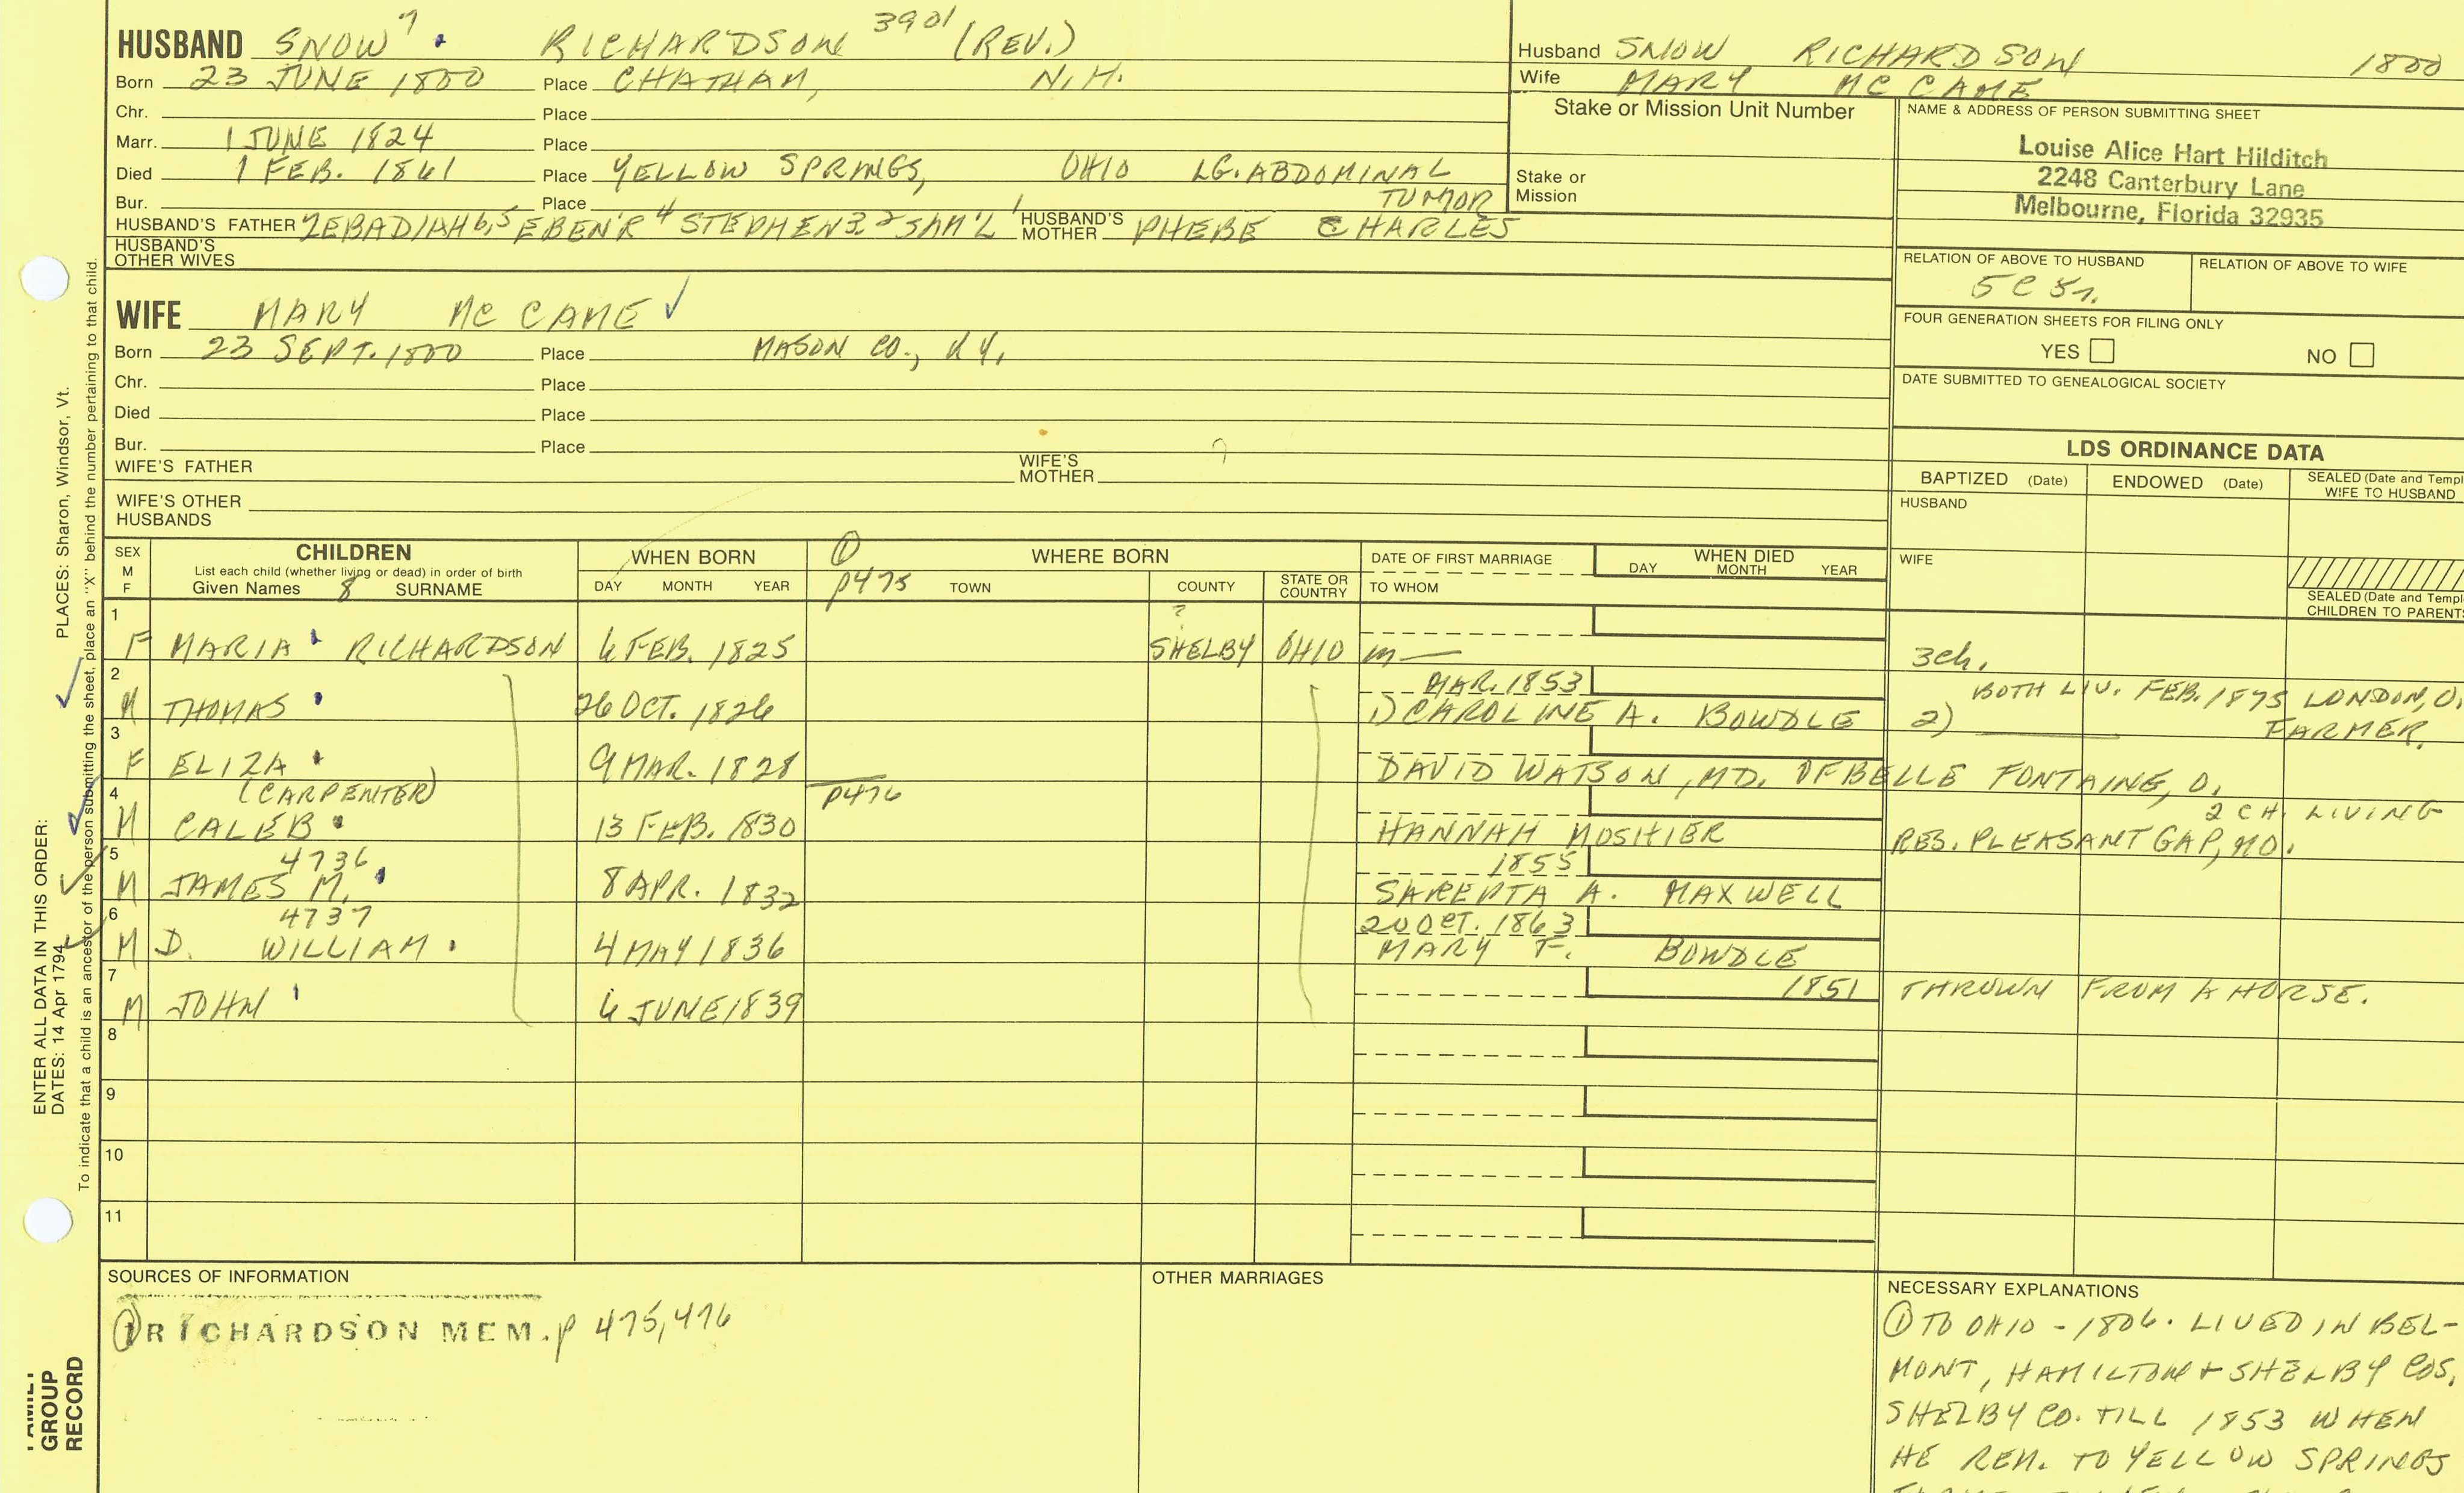 HUSBAND SNOW 7 RICHARDSON 3901 (REV.)
Born 23 JUNE 1800 Place CHATHAM, N.H.
Chr. Place
Marr. 1 JUNE 1824 Place
Died 1 FEB. 1861 Place YELLOW SPRINGS, OHIO LG. ABDOMINAL
TUMOR
Bur. Place
HUSBAND'S FATHER ZEBADIAH 6,5 EBEN'R 4 STEPHEN 3,2 SAM'L 1 HUSBAND'S MOTHER PHEBE CHARLES
HUSBAND'S OTHER WIVES
Husband SNOW RICHARDSON 1800
Wife MARY MC CAME
Stake or Mission Unit Number
Stake or Mission
NAME & ADDRESS OF PERSON SUBMITTING SHEET
Louise Alice Hart Hilditch
2248 Canterbury Lane
Melbourne, Florida 32935
RELATION OF ABOVE TO HUSBAND RELATION OF ABOVE TO WIFE
5 C 5r.
FOUR GENERATION SHEETS FOR FILING ONLY
YES NO
DATE SUBMITTED TO GENEALOGICAL SOCIETY
WIFE MARY MC CAME ✓
Born 23 SEPT. 1800 Place MASON CO., KY.
Chr. Place
Died Place
Bur. Place
WIFE'S FATHER WIFE'S MOTHER ?
WIFE'S OTHER HUSBANDS
LDS ORDINANCE DATA
BAPTIZED (Date) ENDOWED (Date) SEALED (Date and Templ
WIFE TO HUSBAND
HUSBAND
WIFE
SEALED (Date and Templ
CHILDREN TO PARENT
SEX M F
CHILDREN
List each child (whether living or dead) in order of birth
Given Names 8 SURNAME
WHEN BORN
DAY MONTH YEAR
① p475
WHERE BORN
TOWN COUNTY STATE OR COUNTRY
DATE OF FIRST MARRIAGE
TO WHOM
WHEN DIED
DAY MONTH YEAR
1 F MARIA RICHARDSON 6 FEB. 1825 ? SHELBY OHIO m — 3 ch.
2 M THOMAS 26 OCT. 1826 MAR. 1853
1) CAROLINE A. BOWDLE 2) BOTH LIV. FEB. 1875 LONDON, O.
FARMER.
3 F ELIZA 9 MAR. 1828 DAVID WATSON, MD. OF BELLE FONTAINE, O.
2 CH. LIVING
4 (CARPENTER) p476
M CALEB 13 FEB. 1830 HANNAH MOSHIER RES. PLEASANT GAP, MO.
5 4736 1855
M JAMES M. 8 APR. 1832 SAREPTA A. MAXWELL
6 4737 20 OCT. 1863
M D. WILLIAM 4 MAY 1836 MARY F. BOWDLE
7 M JOHN 6 JUNE 1839 1851 THROWN FROM A HORSE.
8
9
10
11
SOURCES OF INFORMATION
① RICHARDSON MEM. p 475, 476
OTHER MARRIAGES
NECESSARY EXPLANATIONS
① TO OHIO - 1806. LIVED IN BEL-
MONT, HAMILTON + SHELBY COS.
SHELBY CO. TILL 1853 WHEN
HE REM. TO YELLOW SPRINGS
ENTER ALL DATA IN THIS ORDER:
DATES: 14 Apr 1794
PLACES: Sharon, Windsor, Vt.
To indicate that a child is an ancestor of the person submitting the sheet, place an "X" behind the number pertaining to that child.
GROUP
RECORD